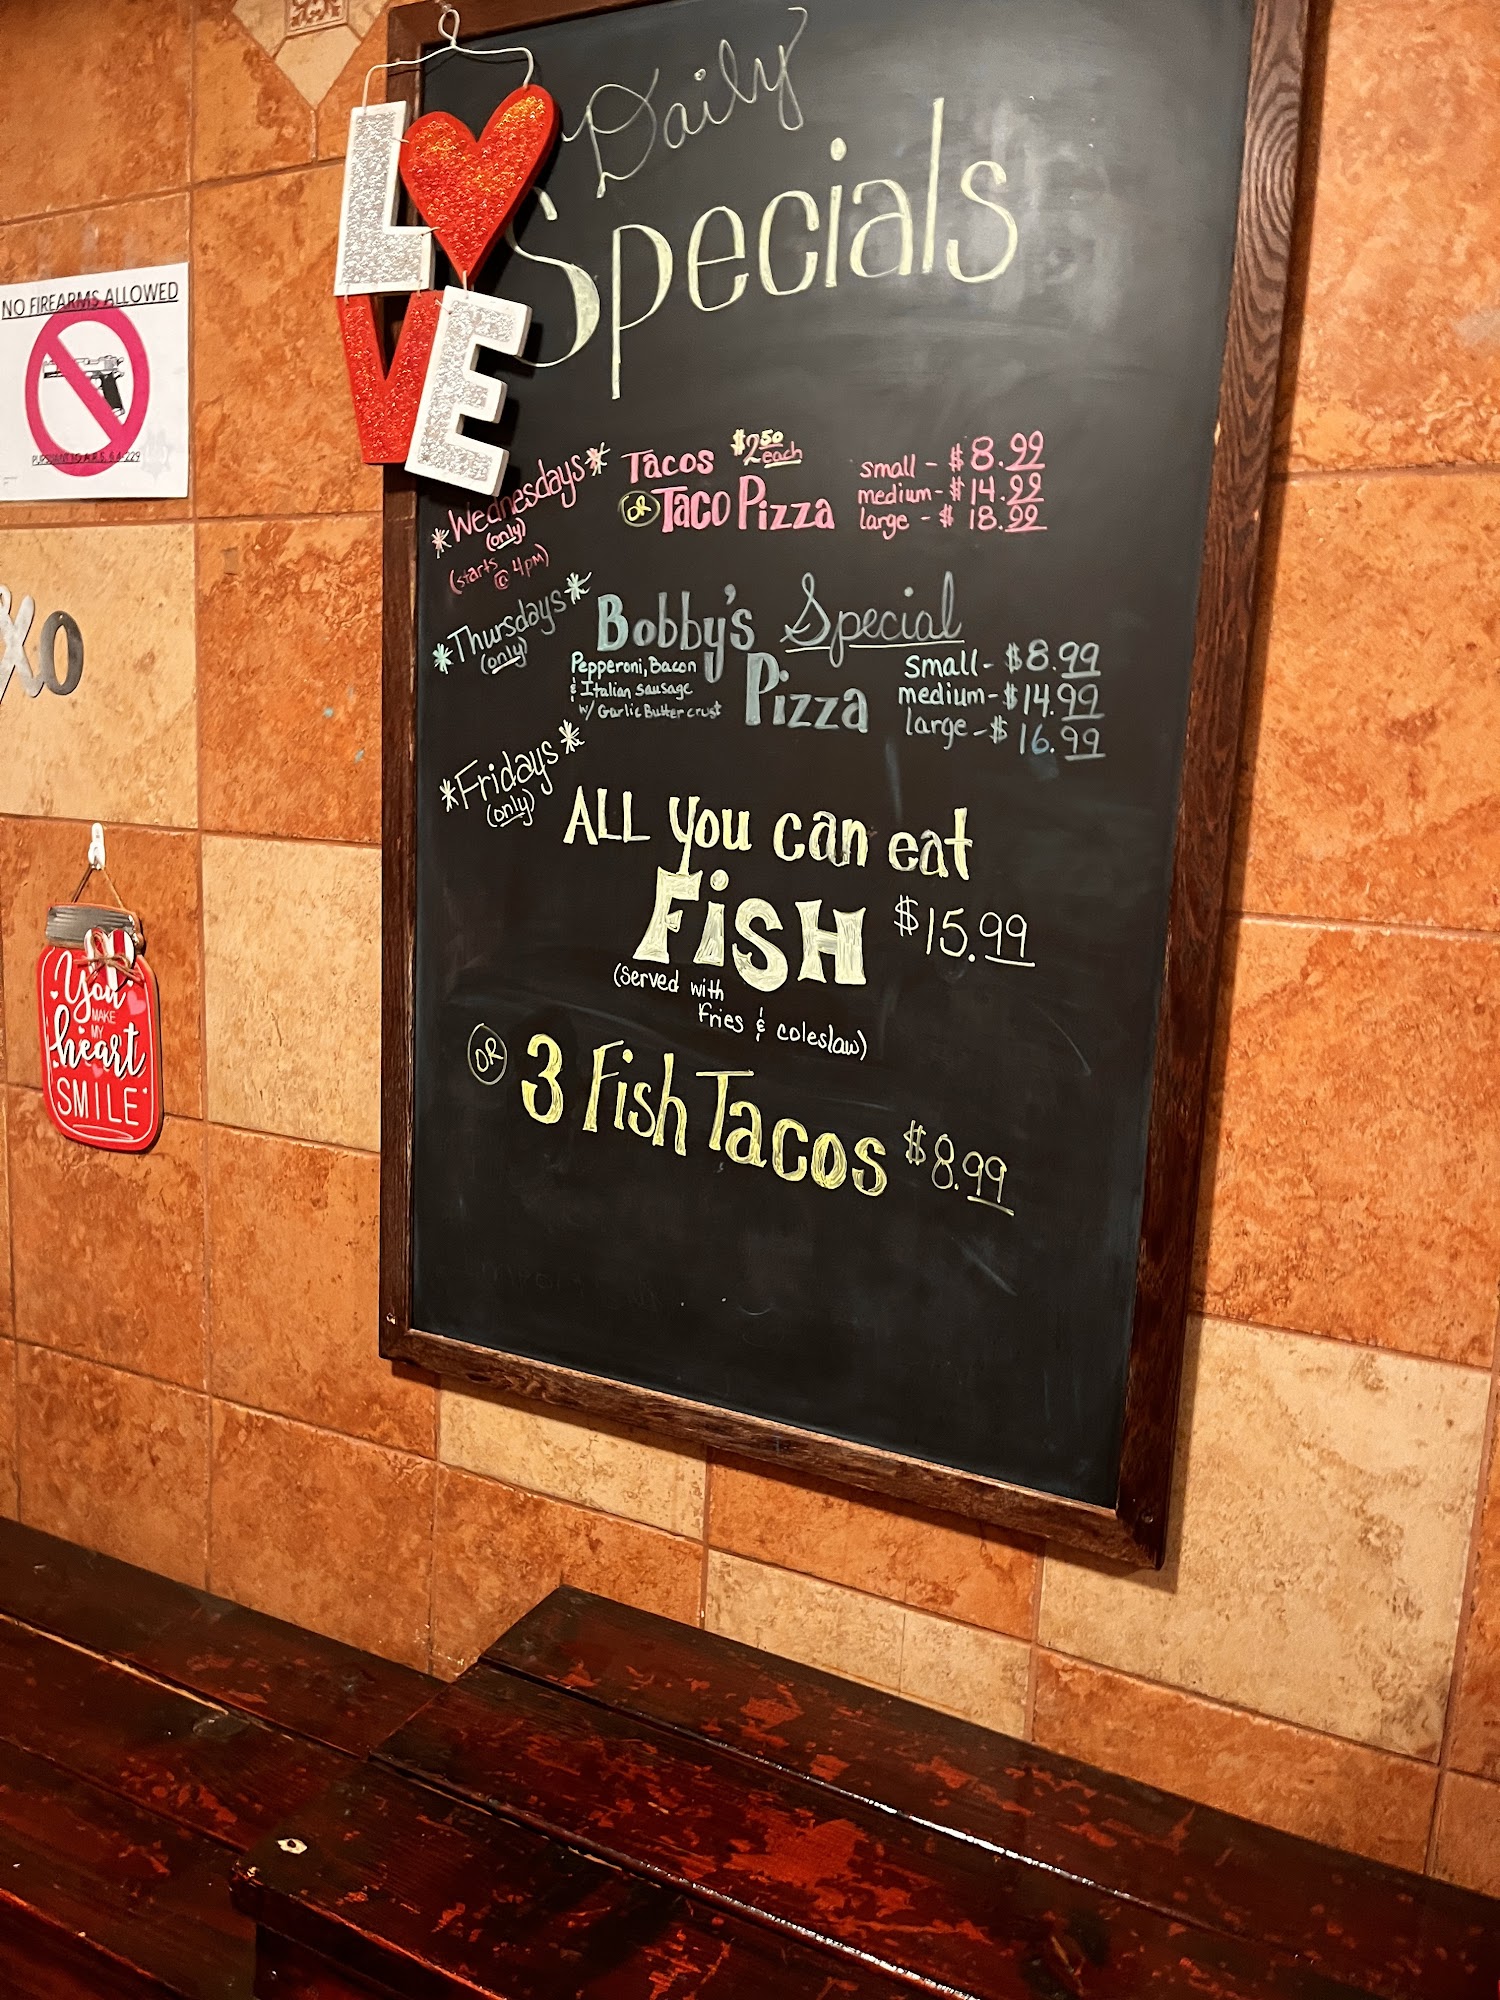 Daily
Specials
LOVE
NO FIREARMS ALLOWED
PURSUANT TO A.R.S. 4-229
*Wednesdays*
(only)
(starts @ 4pm)
Tacos $2.50 each
OR Taco Pizza
small - $8.99
medium - $14.99
large - $18.99
*Thursdays*
(only)
Bobby's Special
Pizza
Pepperoni, Bacon
& Italian sausage
w/ Garlic Butter crust
small - $8.99
medium - $14.99
large - $16.99
*Fridays*
(only)
ALL you can eat
FiSH $15.99
(served with
fries & coleslaw)
OR 3 Fish Tacos $8.99
XO
You
MAKE
MY
heart
SMILE